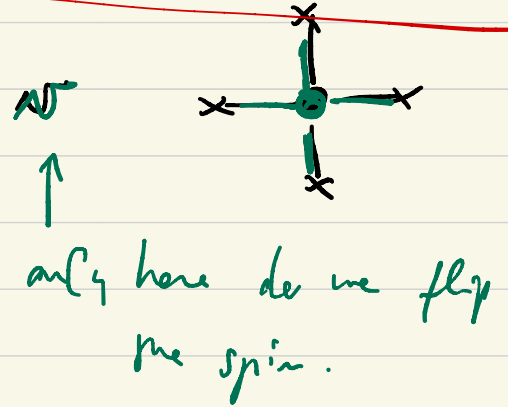 only here do we flip
the spin.